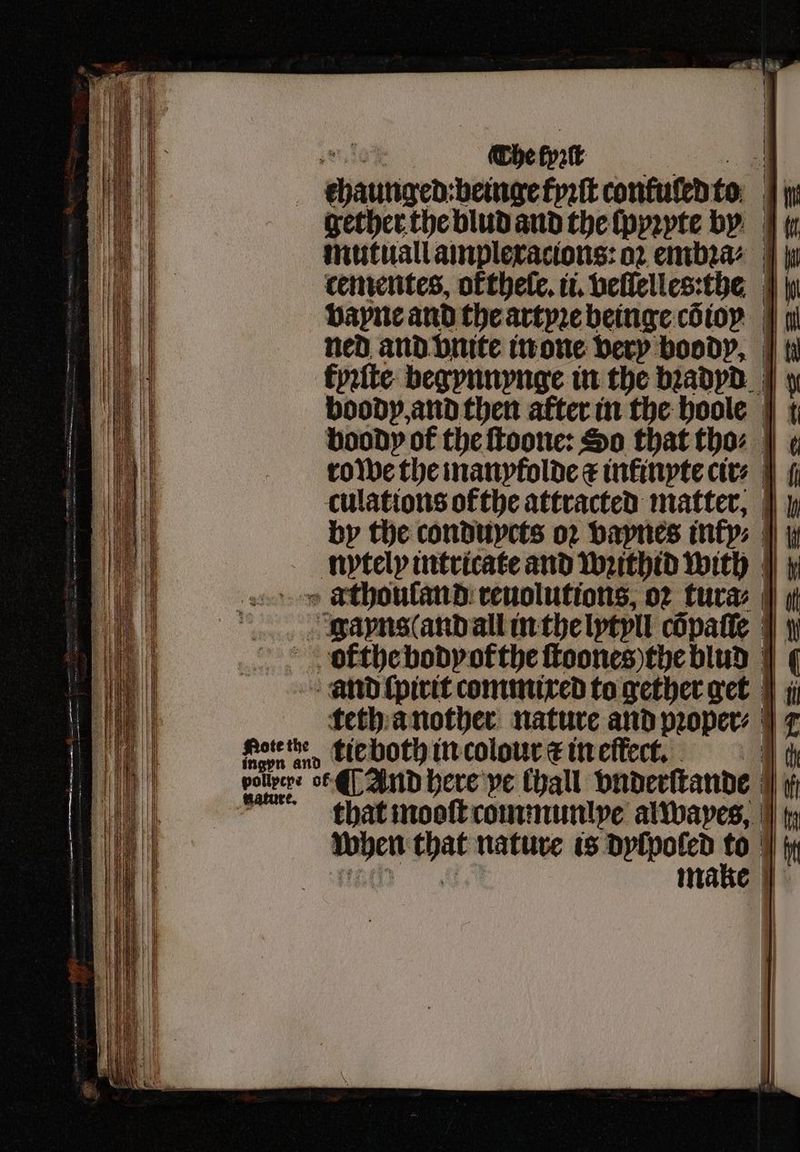 The fyrſt
chaunged:beinge fyrſt confuſed to
gether the blud and the ſpprpte by
mutuall amplexacions: or embra⸗
cementes, of theſe. ii. veſſelles:the
vayne and the artyre beinge cōioy
ned and vnite in one very boody,
fyrſte begynnynge in the bradyd
boody,and then after in the hoole
boody of the ſtoone: So that tho⸗
rowe the manyfolde & infinyte cir⸗
culations of the attracted matter,
by the conduycts or vaynes infy⸗
nytely intricate and writhid with
a thouſand reuolutions, or tura⸗
gayns(and all in the lytyll cōpaſſe
of the body of the ſtoones)the blud
and ſpirit commixed to gether get
teth another nature and proper⸗
tie both in colour & in effect.
Note the
ingyn and
pollycye of
nature.
¶ And here ye ſhall vnderſtande
that mooſt communlye allwayes,
when that nature is dyſpoſed to
make